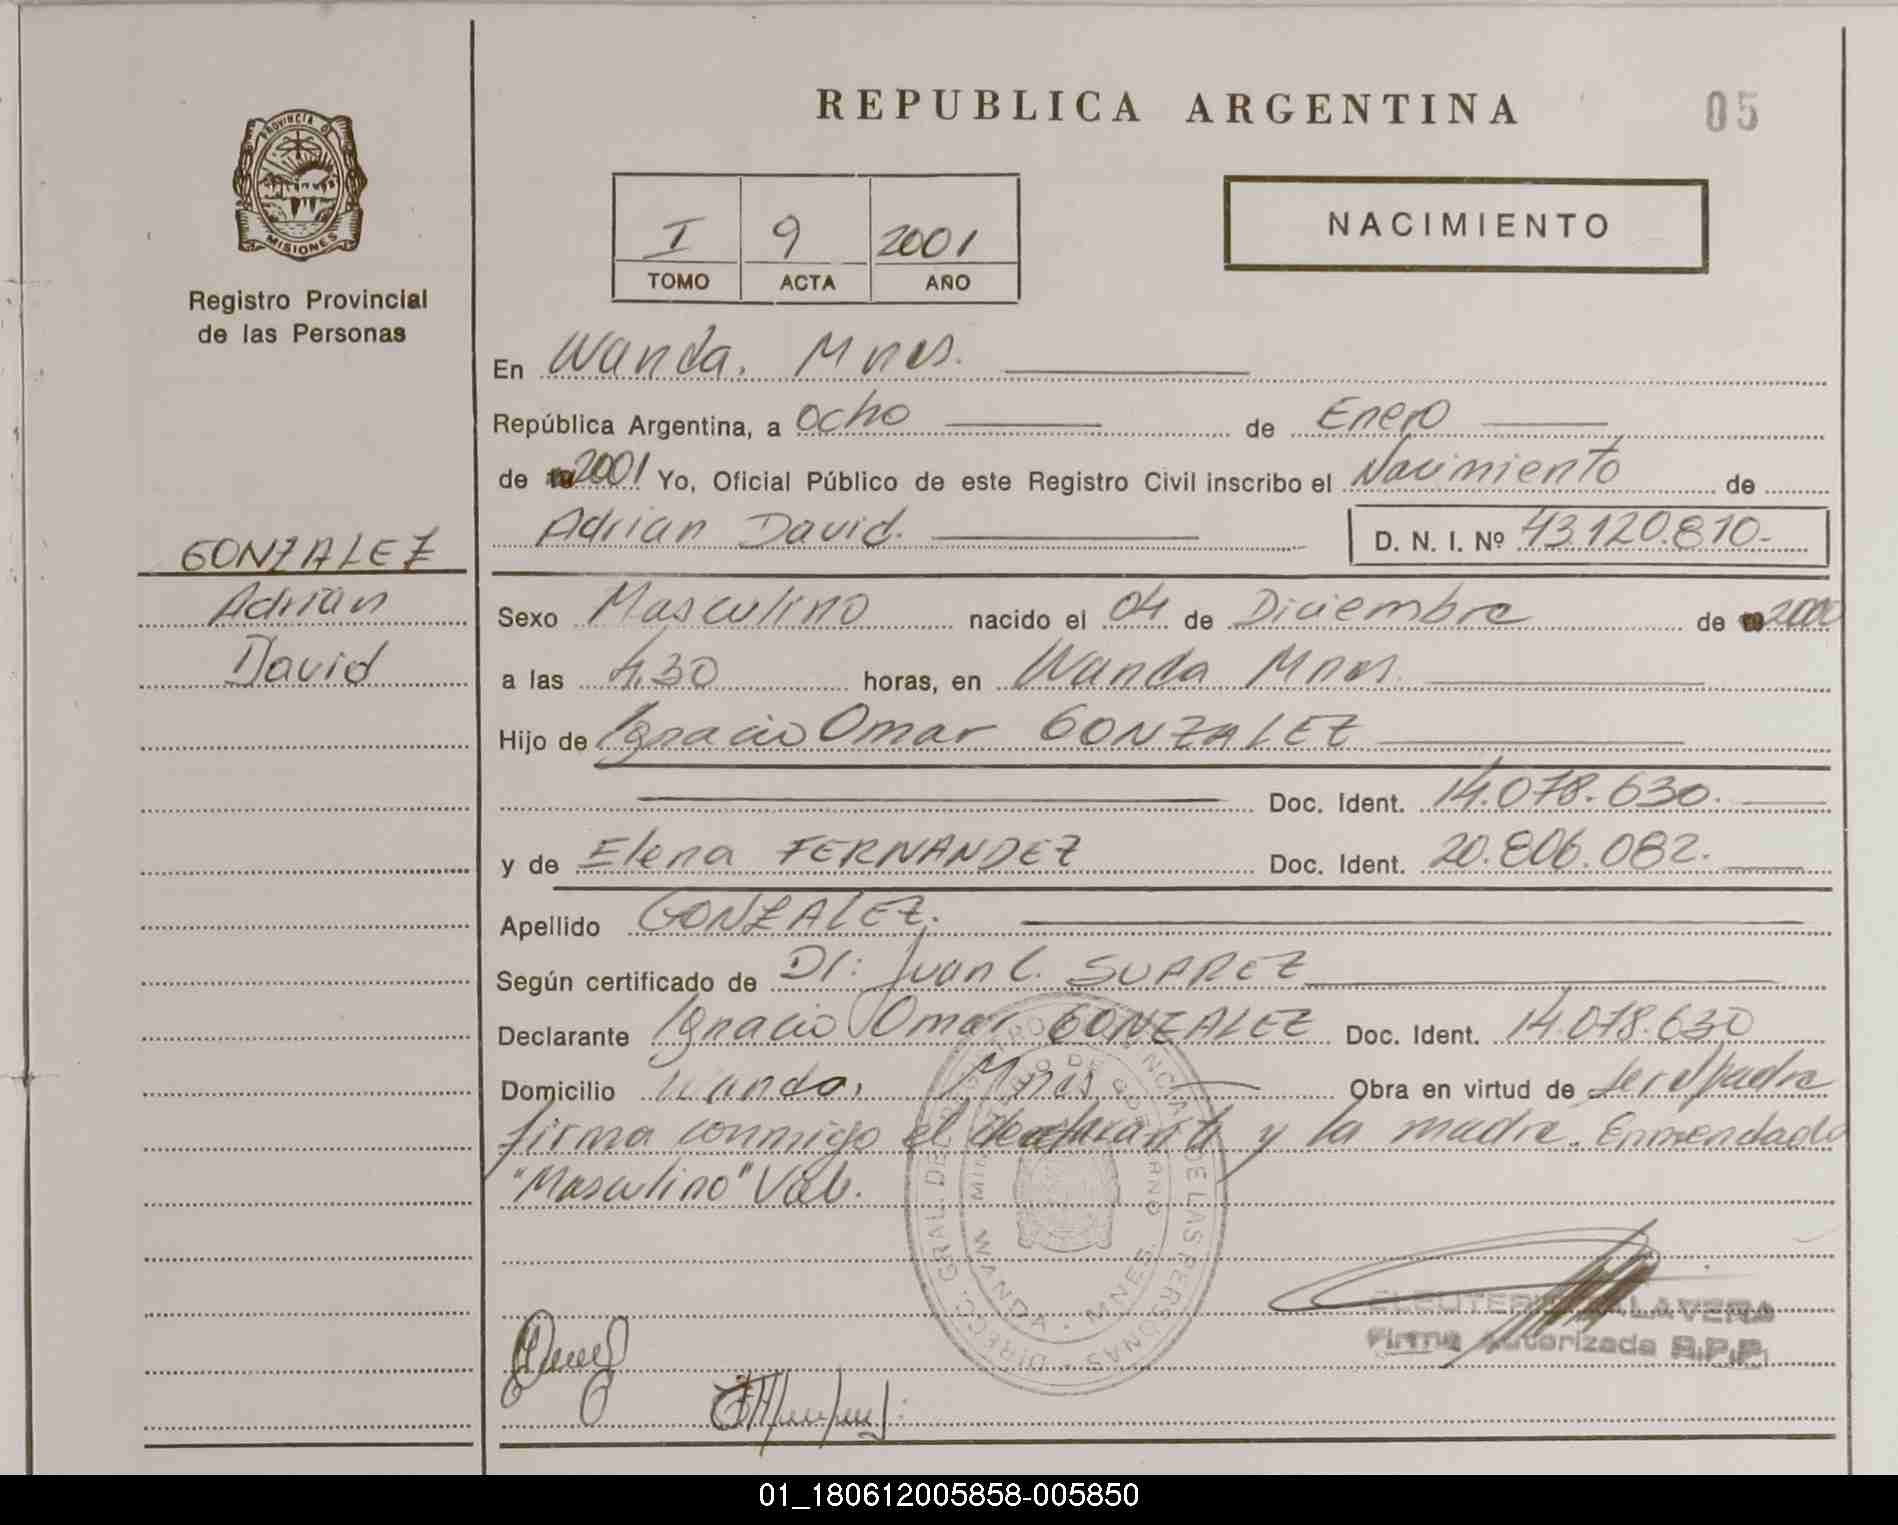 REPUBLICA ARGENTINA
05
PROVINCIA DE
MISIONES
Registro Provincial
de las Personas
GONZALEZ
Adrian
David
I 9 2001
TOMO ACTA AÑO
NACIMIENTO
En Wanda. Mnes.
República Argentina, a ocho de Enero
de 2001 Yo, Oficial Público de este Registro Civil inscribo el Nacimiento de
Adrian David. D. N. I. Nº 43.120.810-
Sexo Masculino nacido el 04 de Diciembre de 2000
a las 4.30 horas, en Wanda Mnes.
Hijo de Ignacio Omar GONZALEZ
Doc. Ident. 14.078.630.
y de Elena FERNANDEZ Doc. Ident. 20.806.082.
Apellido GONZALEZ.
Según certificado de Dr: Juan C. SUAREZ
Declarante Ignacio Omar GONZALEZ Doc. Ident. 14.078.630
Domicilio Wanda, Mnes Obra en virtud de ser el padre
firma conmigo el declarante y la madre. Enmendado
"Masculino" Vale.
DIRECC. GRAL. DEL REGISTRO PROVINCIAL DE LAS PERSONAS
MINISTERIO DE GOBIERNO
WANDA - MNES.
Firma Autorizada R.P.P.
01_180612005858-005850